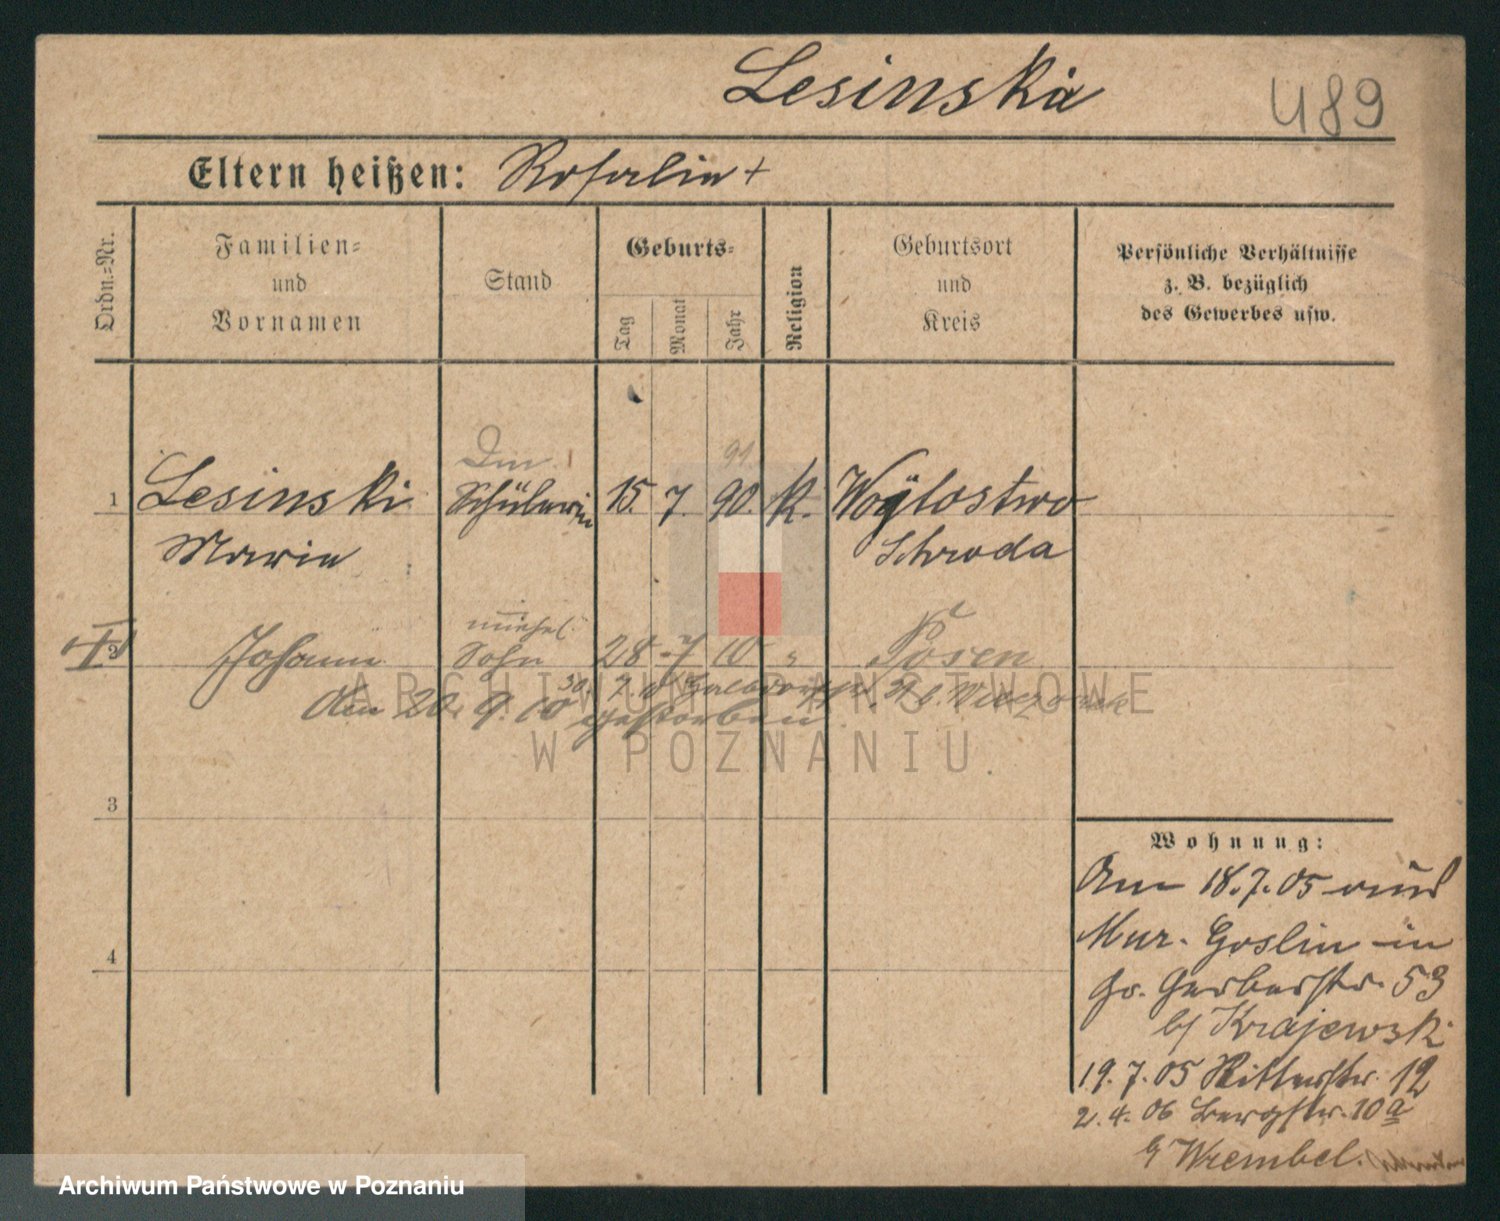 Lesinska
489
Eltern heißen: Rosalie +
Ordn.=Nr.
Familien=
und
Vornamen
Stand
Geburts=
Tag
Monat
Jahr
Religion
Geburtsort
und
Kreis
Persönliche Verhältnisse
z. B. bezüglich
des Gewerbes usw.
91
1 Lesinski Schülerin 15. 7. 90. K. Woÿtostwo
Marie Schroda
unehel.
2 Johann Sohn 28 7 10 " Posen
30. 7. 10
Den 20. 9. 10 gestorben
3
4
Wohnung:
Am 18.7.05 aus
Mur. Goslin in
Gr. Gerberstr. 53
b/ Krajewski
19.7.05 Ritterstr. 12
2.4.06 Bergstr. 10a
b/ Wrembel.
ARCHIWUM PAŃSTWOWE
W POZNANIU
Archiwum Państwowe w Poznaniu